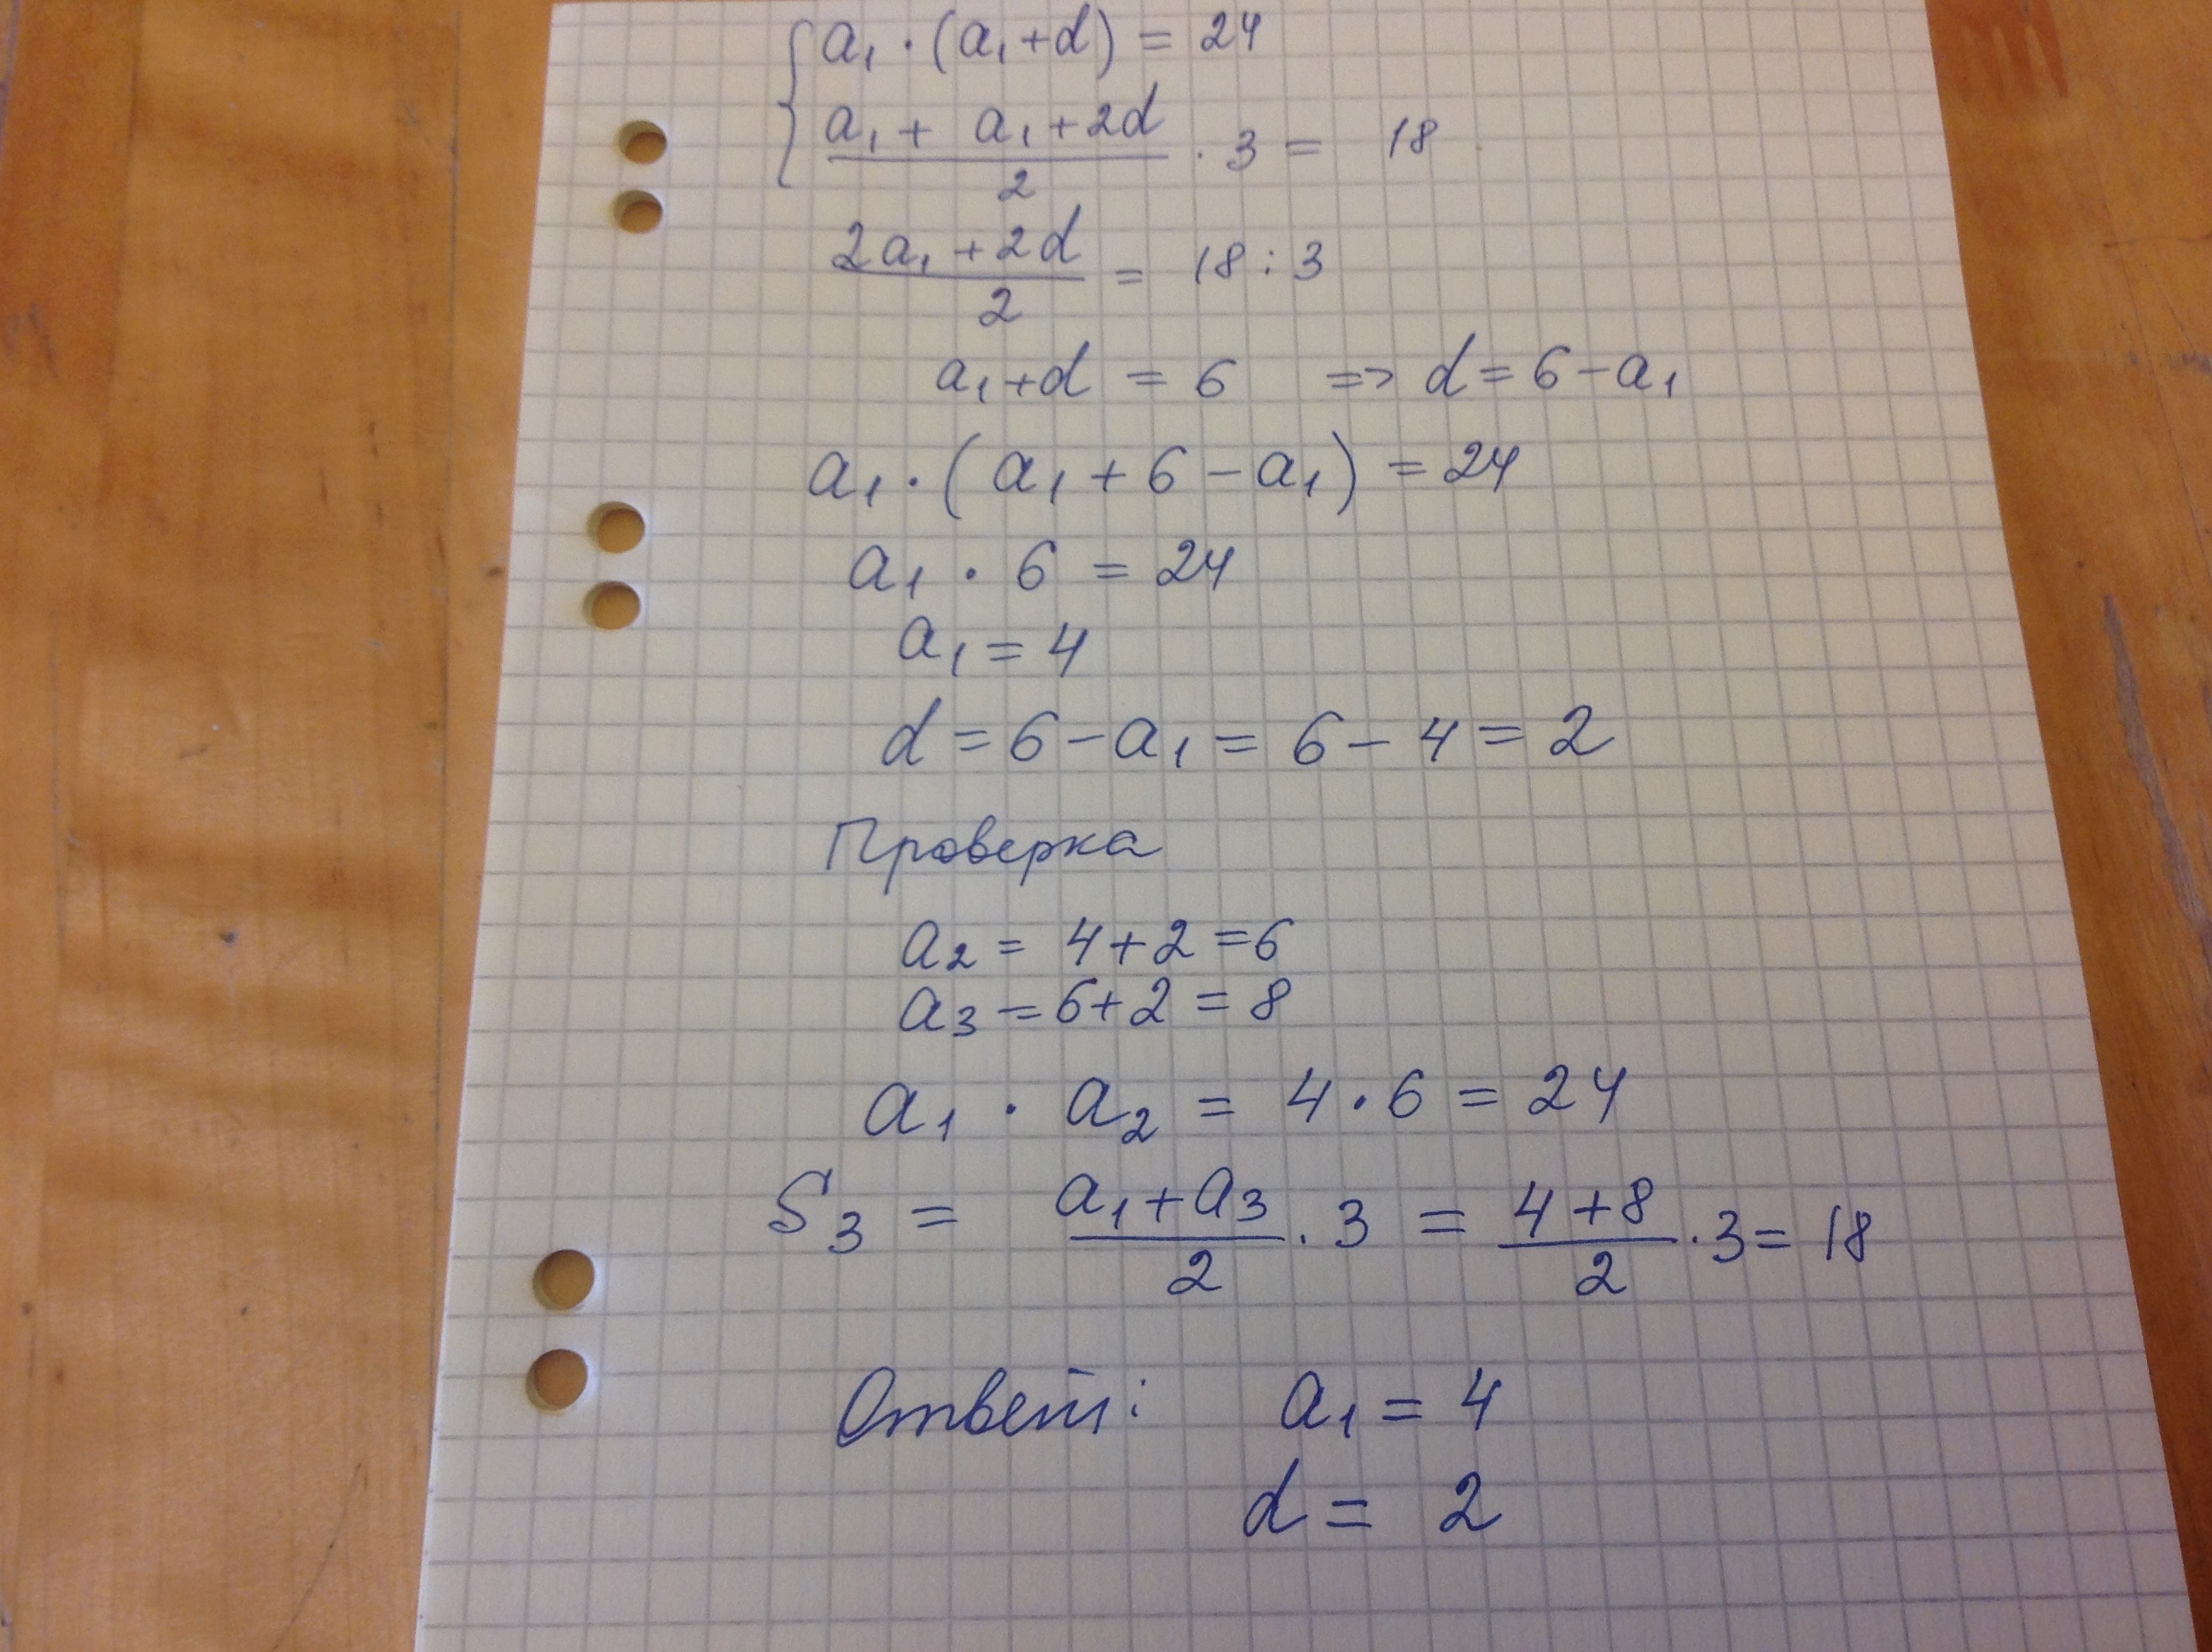 { a₁ · (a₁ + d) = 24
(a₁ + a₁ + 2d)/2 · 3 = 18
(2a₁ + 2d)/2 = 18 : 3
a₁ + d = 6 => d = 6 - a₁
a₁ · (a₁ + 6 - a₁) = 24
a₁ · 6 = 24
a₁ = 4
d = 6 - a₁ = 6 - 4 = 2
Проверка
a₂ = 4 + 2 = 6
a₃ = 6 + 2 = 8
a₁ · a₂ = 4 · 6 = 24
S₃ = (a₁ + a₃)/2 · 3 = (4 + 8)/2 · 3 = 18
Ответ: a₁ = 4
d = 2